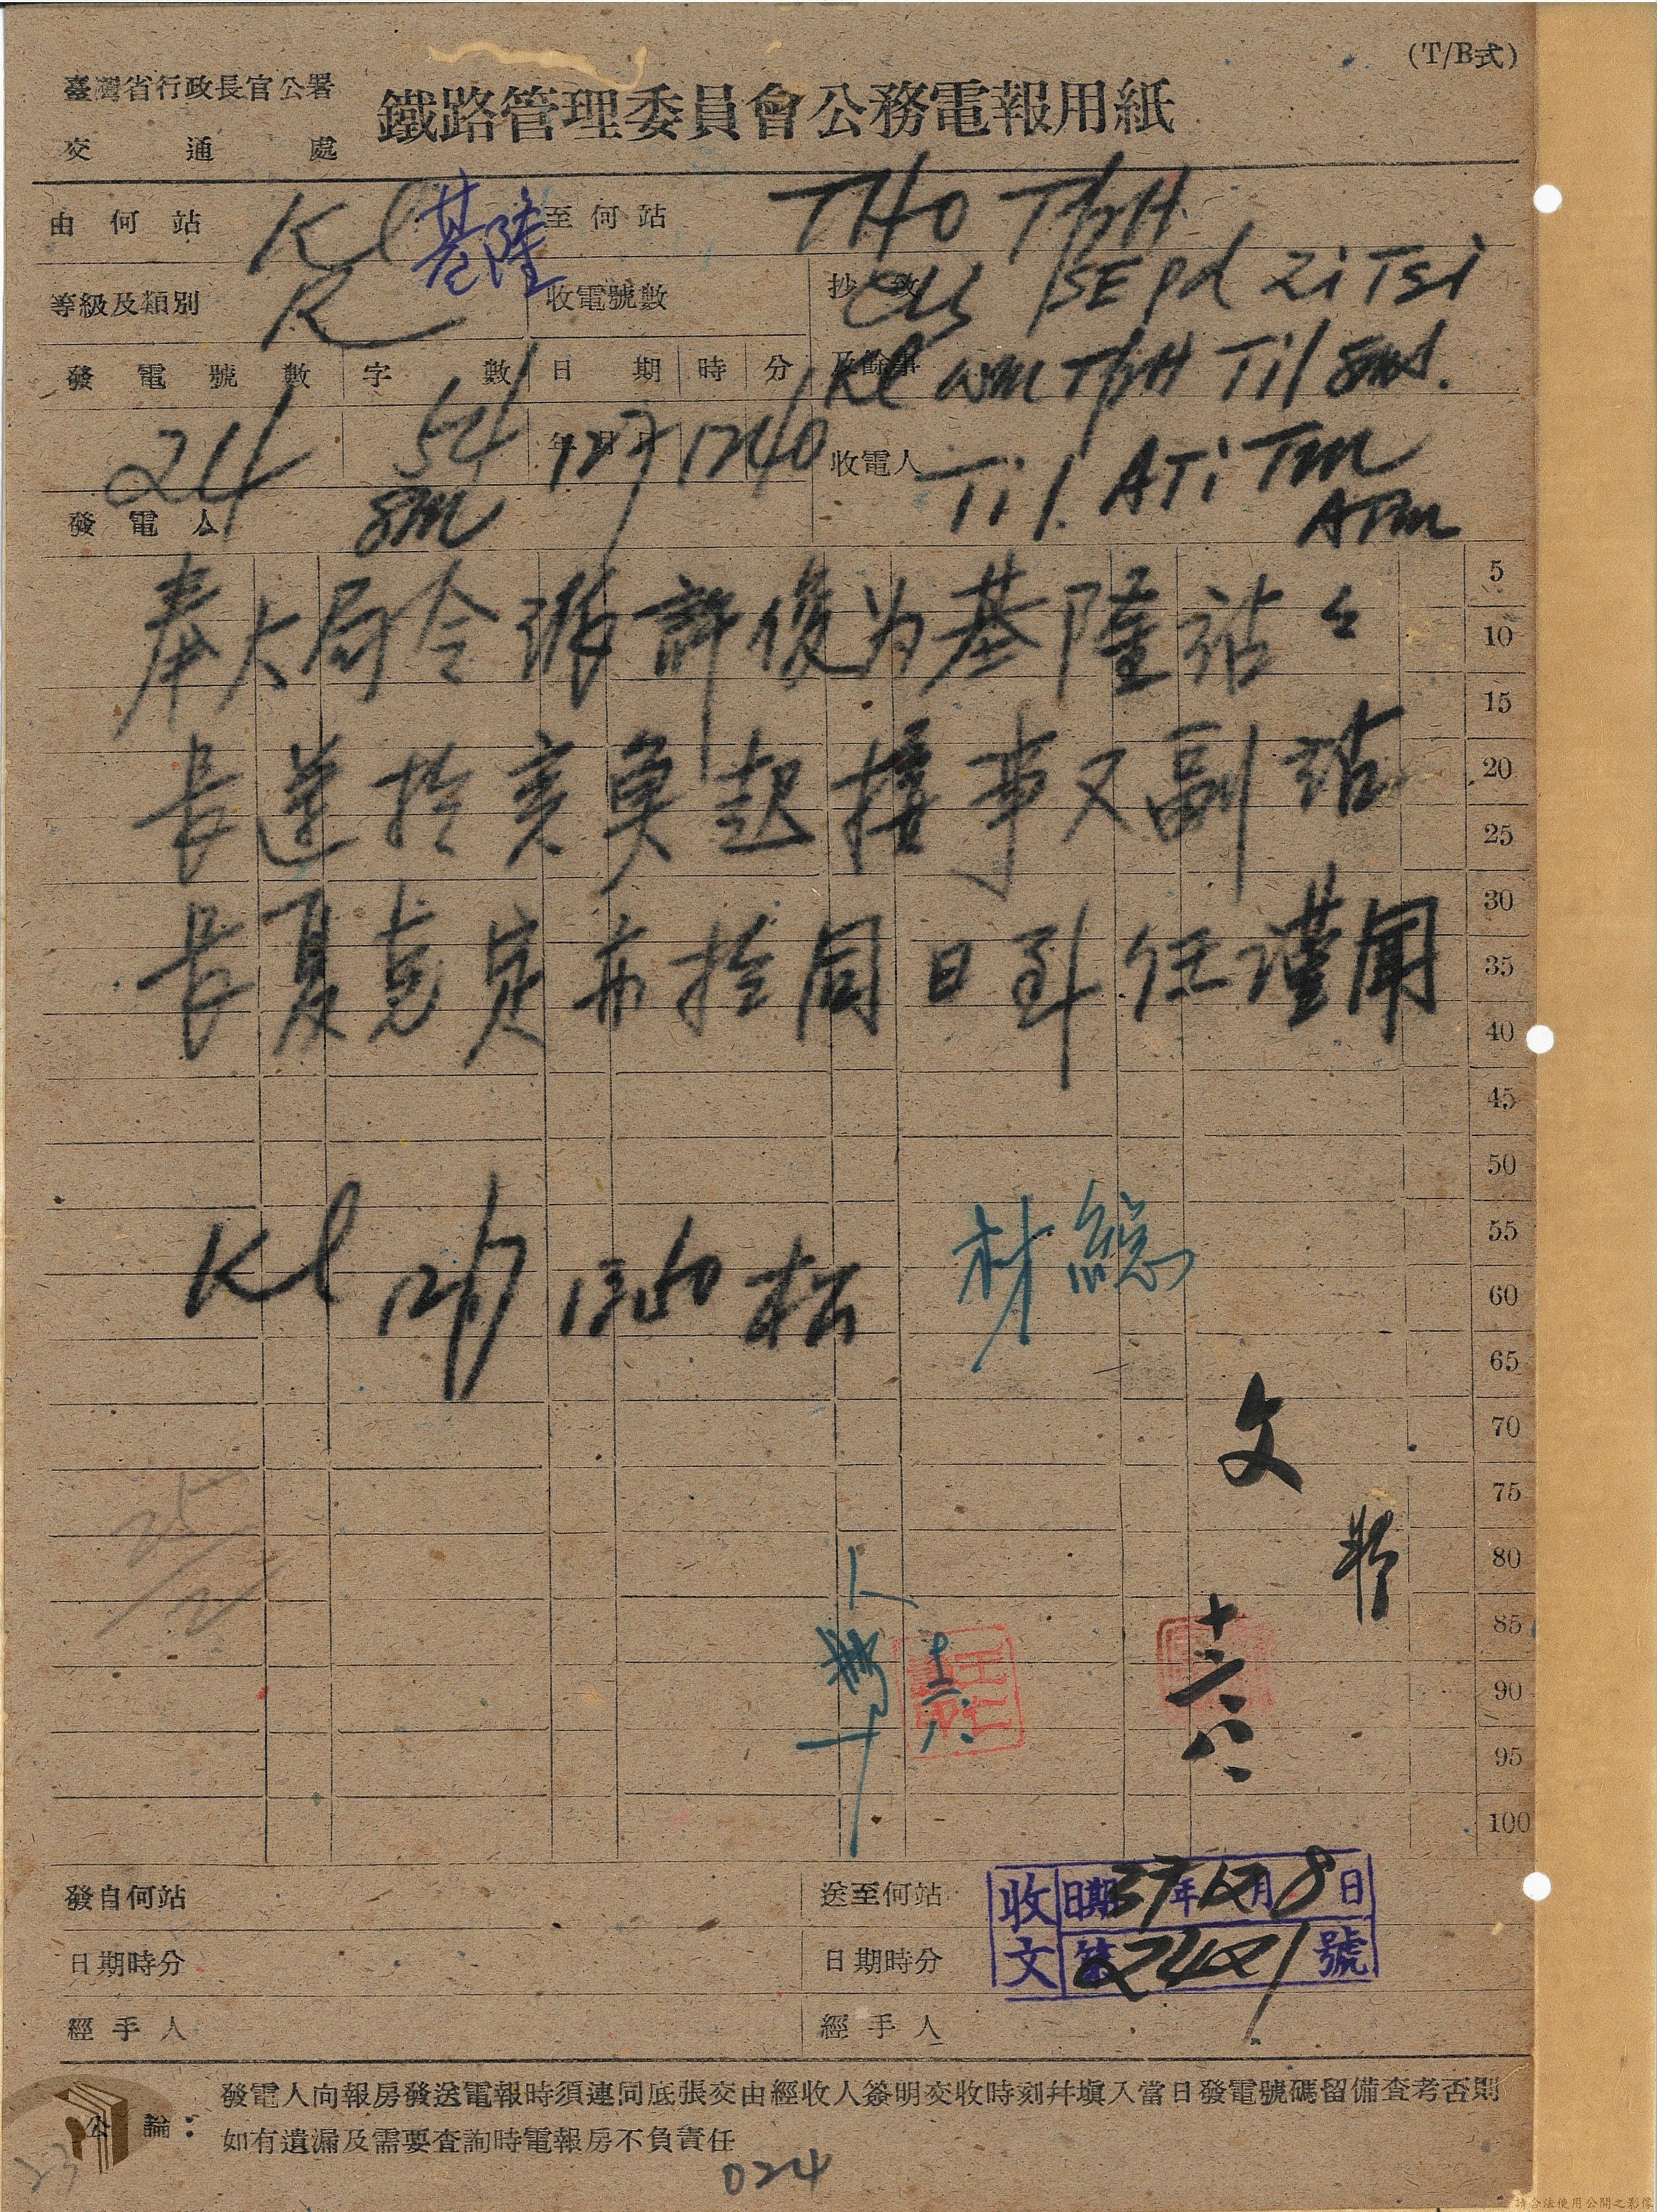 (T/B式)
臺灣省行政長官公署
交通處
鐵路管理委員會公務電報用紙
由何站 Kl 基隆 至何站 THO
等級及類別 R 收電號數 抄致 SE pd Zi Tsi
發電號數 字數 日期 時分 及餘事 Kl wm Til
214 54 年月日 12/7 1240 收電人 Til. ATi Tm
發電人 ATm
5
奉大局令派許俊为基隆站々
10
15
長遵於亥魚起接事又副站
20
25
30
長夏克定亦於同日到任謹聞
35
40
45
50
55
Kl 12/7 1350 松 材總
60
65
70
文
75
25/2
80
85
十二八
90
95
100
發自何站 送至何站
收文 日期37年12月8日
日期時分 日期時分
第2421號
經手人 經手人
公論:
發電人向報房發送電報時須連同底張交由經收人簽明交收時刻幷塡入當日發電號碼留備查考否則
如有遺漏及需要查詢時電報房不負責任
23
024
請合法使用公開之影像